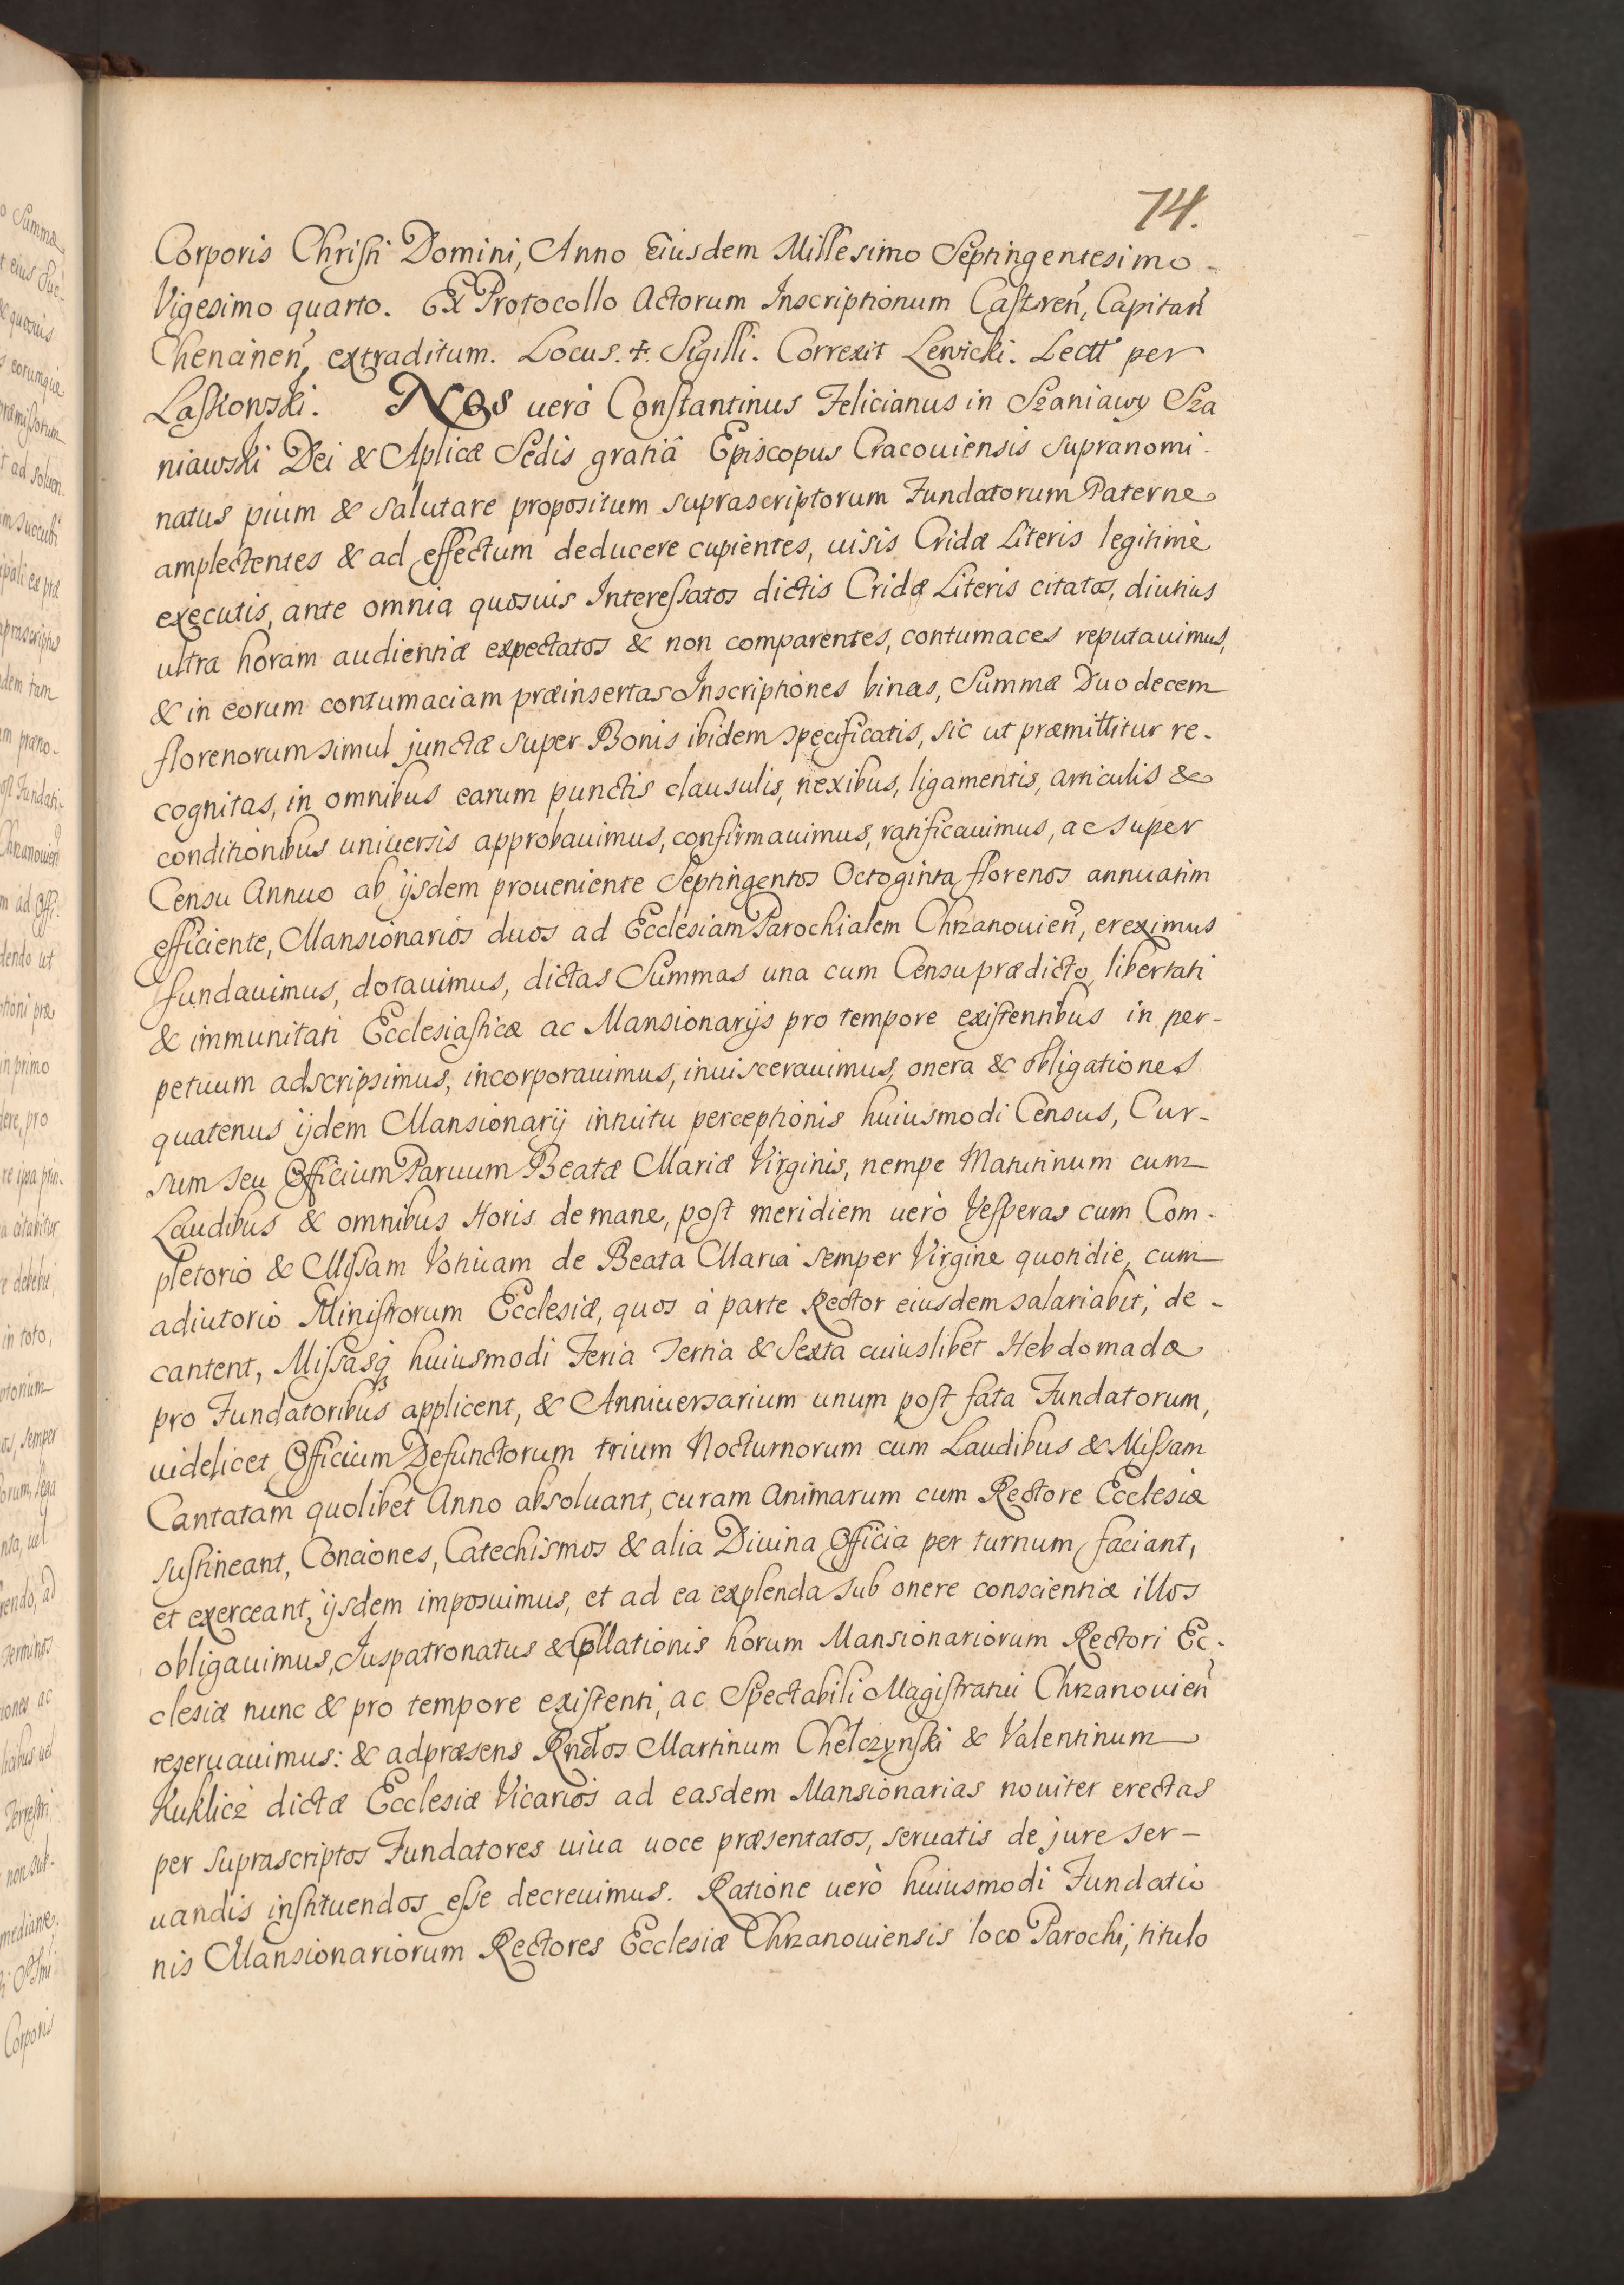 74.
Corporis Christi Domini, Anno Eiusdem Millesimo Septingentesimo
Vigesimo quarto. Ex Protocollo Actorum Inscriptionum Castren̄, Capitan̄
Chencinen̄, extraditum. Locus. ✝. Sigilli. Correxit Lewicki. Lectt per
Laskowski. Nos uerò Constantinus Felicianus in Szaniawy Sza
niawski Dei & Aplicæ Sedis gratiâ Episcopus Cracouiensis supranomi-
natus pium & salutare propositum suprascriptorum Fundatorum Paterne
amplectentes & ad effectum deducere cupientes, uisis Cridæ Literis legitimè
executis, ante omnia quosuis Interessatos dictis Cridæ Literis citatos, diutius
ultra horam audientiæ expectatos & non comparentes, contumaces reputauimus,
& in eorum contumaciam præinsertas Inscriptiones binas, Summæ Duodecem
florenorum simul junctæ super Bonis ibidem specificatis, sic ut præmittitur re-
cognitas, in omnibus earum punctis clausulis, nexibus, ligamentis, articulis &
conditionibus uniuersis approbauimus, confirmauimus, ratificauimus, ac super
Censu Annuo ab ijsdem proueniente Septingentos Octoginta florenos annuatim
efficiente, Mansionarios duos ad Ecclesiam Parochialem Chrzanouien̄, ereximus
fundauimus, dotauimus, dictas Summas una cum Censu prædicto, libertati
& immunitati Ecclesiasticæ ac Mansionarijs pro tempore existentibus in per-
petuum adscripsimus, incorporauimus, inuiscerauimus, onera & obligationes
quatenus ijdem Mansionarij intuitu perceptionis huiusmodi Census, Cur-
sum seu Officium Paruum Beatæ Mariæ Virginis, nempe Matutinum cum
Laudibus & omnibus Horis de mane, post meridiem uerò Vesperas cum Com-
pletorio & Missam Votiuam de Beata Maria semper Virgine quotidie, cum
adiutorio Ministrorum Ecclesiæ, quos à parte Rector eiusdem salariabit, de-
cantent, Missasq́ʒ huiusmodi Feria Tertia & Sexta cuiuslibet Hebdomadæ
pro Fundatoribus applicent, & Anniuersarium unum post fata Fundatorum,
uidelicet Officium Defunctorum trium Nocturnorum cum Laudibus & Missam
Cantatam quolibet Anno absoluant, curam Animarum cum Rectore Ecclesiæ
sustineant, Conciones, Catechismos & alia Diuina Officia per turnum faciant,
et exerceant, ijsdem imposuimus, et ad ea explenda sub onere conscientiæ illos
obligauimus, Juspatronatus & Collationis horum Mansionariorum Rectori Ec-
clesiæ nunc & pro tempore existenti, ac Spectabili Magistratui Chrzanouien̄
reseruauimus: & ad præsens Rndos Martinum Chełczynski & Valentinum
Kuklicz dictæ Ecclesiæ Vicarios ad easdem Mansionarias nouiter erectas
per suprascriptos Fundatores uiua uoce præsentatos, seruatis de jure ser-
uandis instituendos esse decreuimus. Ratione uerò huiusmodi Fundatio
nis Mansionariorum Rectores Ecclesiæ Chrzanouiensis loco Parochi, titulo